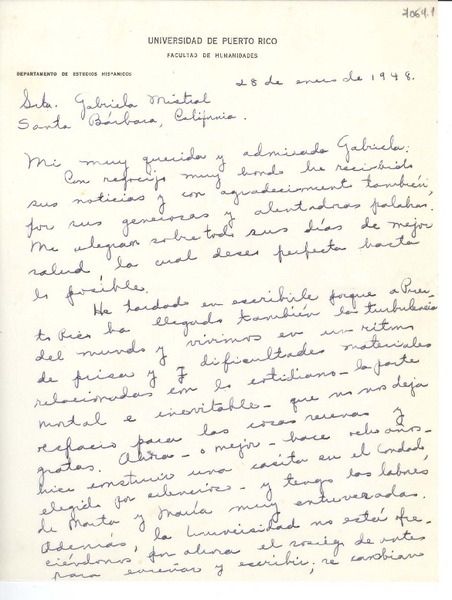 7064.1
UNIVERSIDAD DE PUERTO RICO
FACULTAD DE HUMANIDADES
DEPARTAMENTO DE ESTUDIOS HISPANICOS
28 de enero de 1948.
Srta. Gabriela Mistral
Santa Bárbara, California.
Mi muy querida y admirada Gabriela:
Con regocijo muy hondo he recibido
sus noticias y con agradecimiento también,
por sus generosas y alentadoras palabras.
Me alegran sobre todo sus días de mejor
salud, la cual deseo perfecta hasta
lo posible.
He tardado en escribirle porque a Puer-
to Rico ha llegado también la turbulencia
del mundo y vivimos en un ritmo
de prisa y de dificultades materiales
relacionadas con lo cotidiano - la parte
mortal e inevitable - que no nos deja
espacio para las cosas serenas y
gratas. Ahora - o mejor - hace ocho años -
hice construir una casita en el Condado,
elegido por silencioso - y tengo las labores
de Marta y María muy entreveradas.
Además, la Universidad no está ofre-
ciéndonos por ahora el sosiego de antes
para enseñar y escribir; se cambian